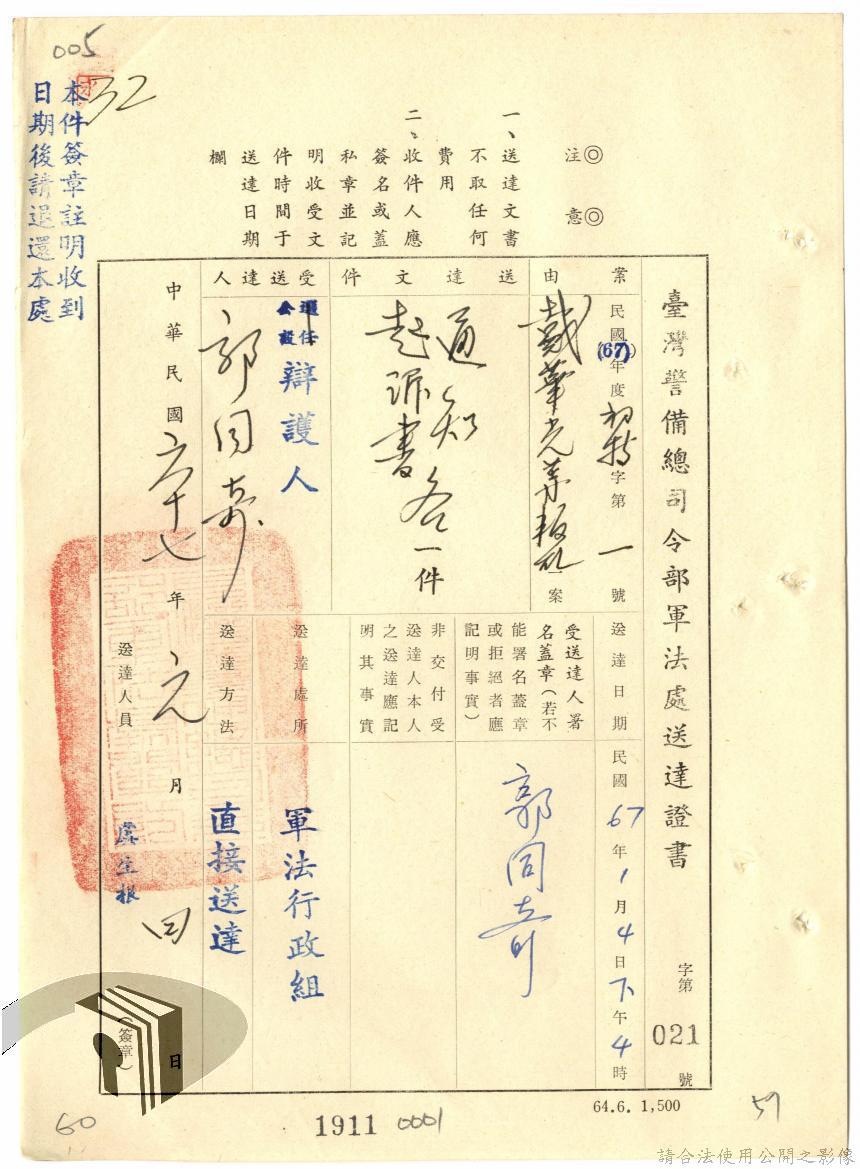 005
32
本件簽章註明收到
日期後請退還本處
◎注意◎
一、送達文書
不取任何
費用
二、收件人應
簽名或蓋
私章並記
明收受文
件時間于
送達日期
欄
臺灣警備總司令部軍法處送達證書
字第021號
案由
民國(67)年度初特字第一號
戴華光等叛亂一案
送達文件
通知
起訴書各一件
受送達人
選任
公設
辯護人
郭同奇
送達日期
民國67年1月4日下午4時
受送達人署
名蓋章（若不
能署名蓋章
或拒絕者應
記明事實）
郭同奇
非交付受
送達人本人
之送達應記
明其事實
送達處所
軍法行政組
送達方法
直接送達
中華民國六十七年元月四日
送達人員
虞生根
（簽章）
64.6. 1,500
60
1911
0001
59
請合法使用公開之影像